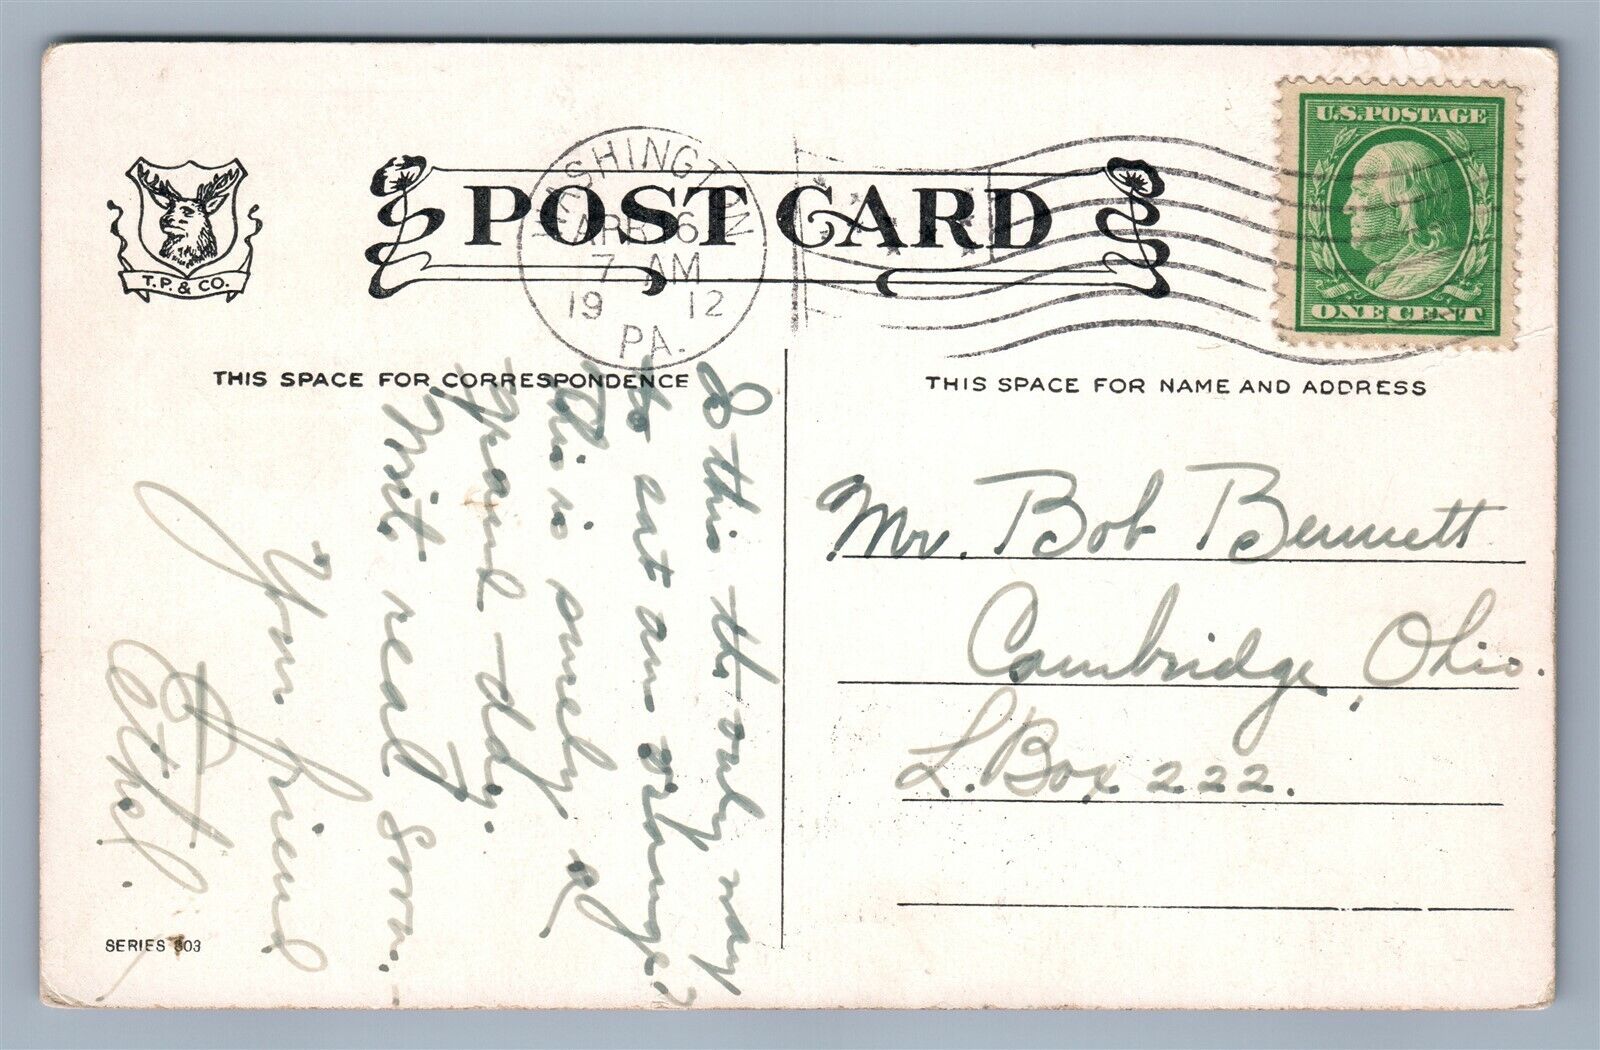 POST CARD
T.P. & CO.
WASHINGTON
APR 6
7 AM
19 12
PA.
U.S. POSTAGE
ONE CENT
THIS SPACE FOR CORRESPONDENCE
Is this the only way
to eat an orange?
This is surely a
grand day.
Write real soon.
Your friend
Ethel.
THIS SPACE FOR NAME AND ADDRESS
Mr. Bob Bennett
Cambridge, Ohio.
L. Box 222.
SERIES 303